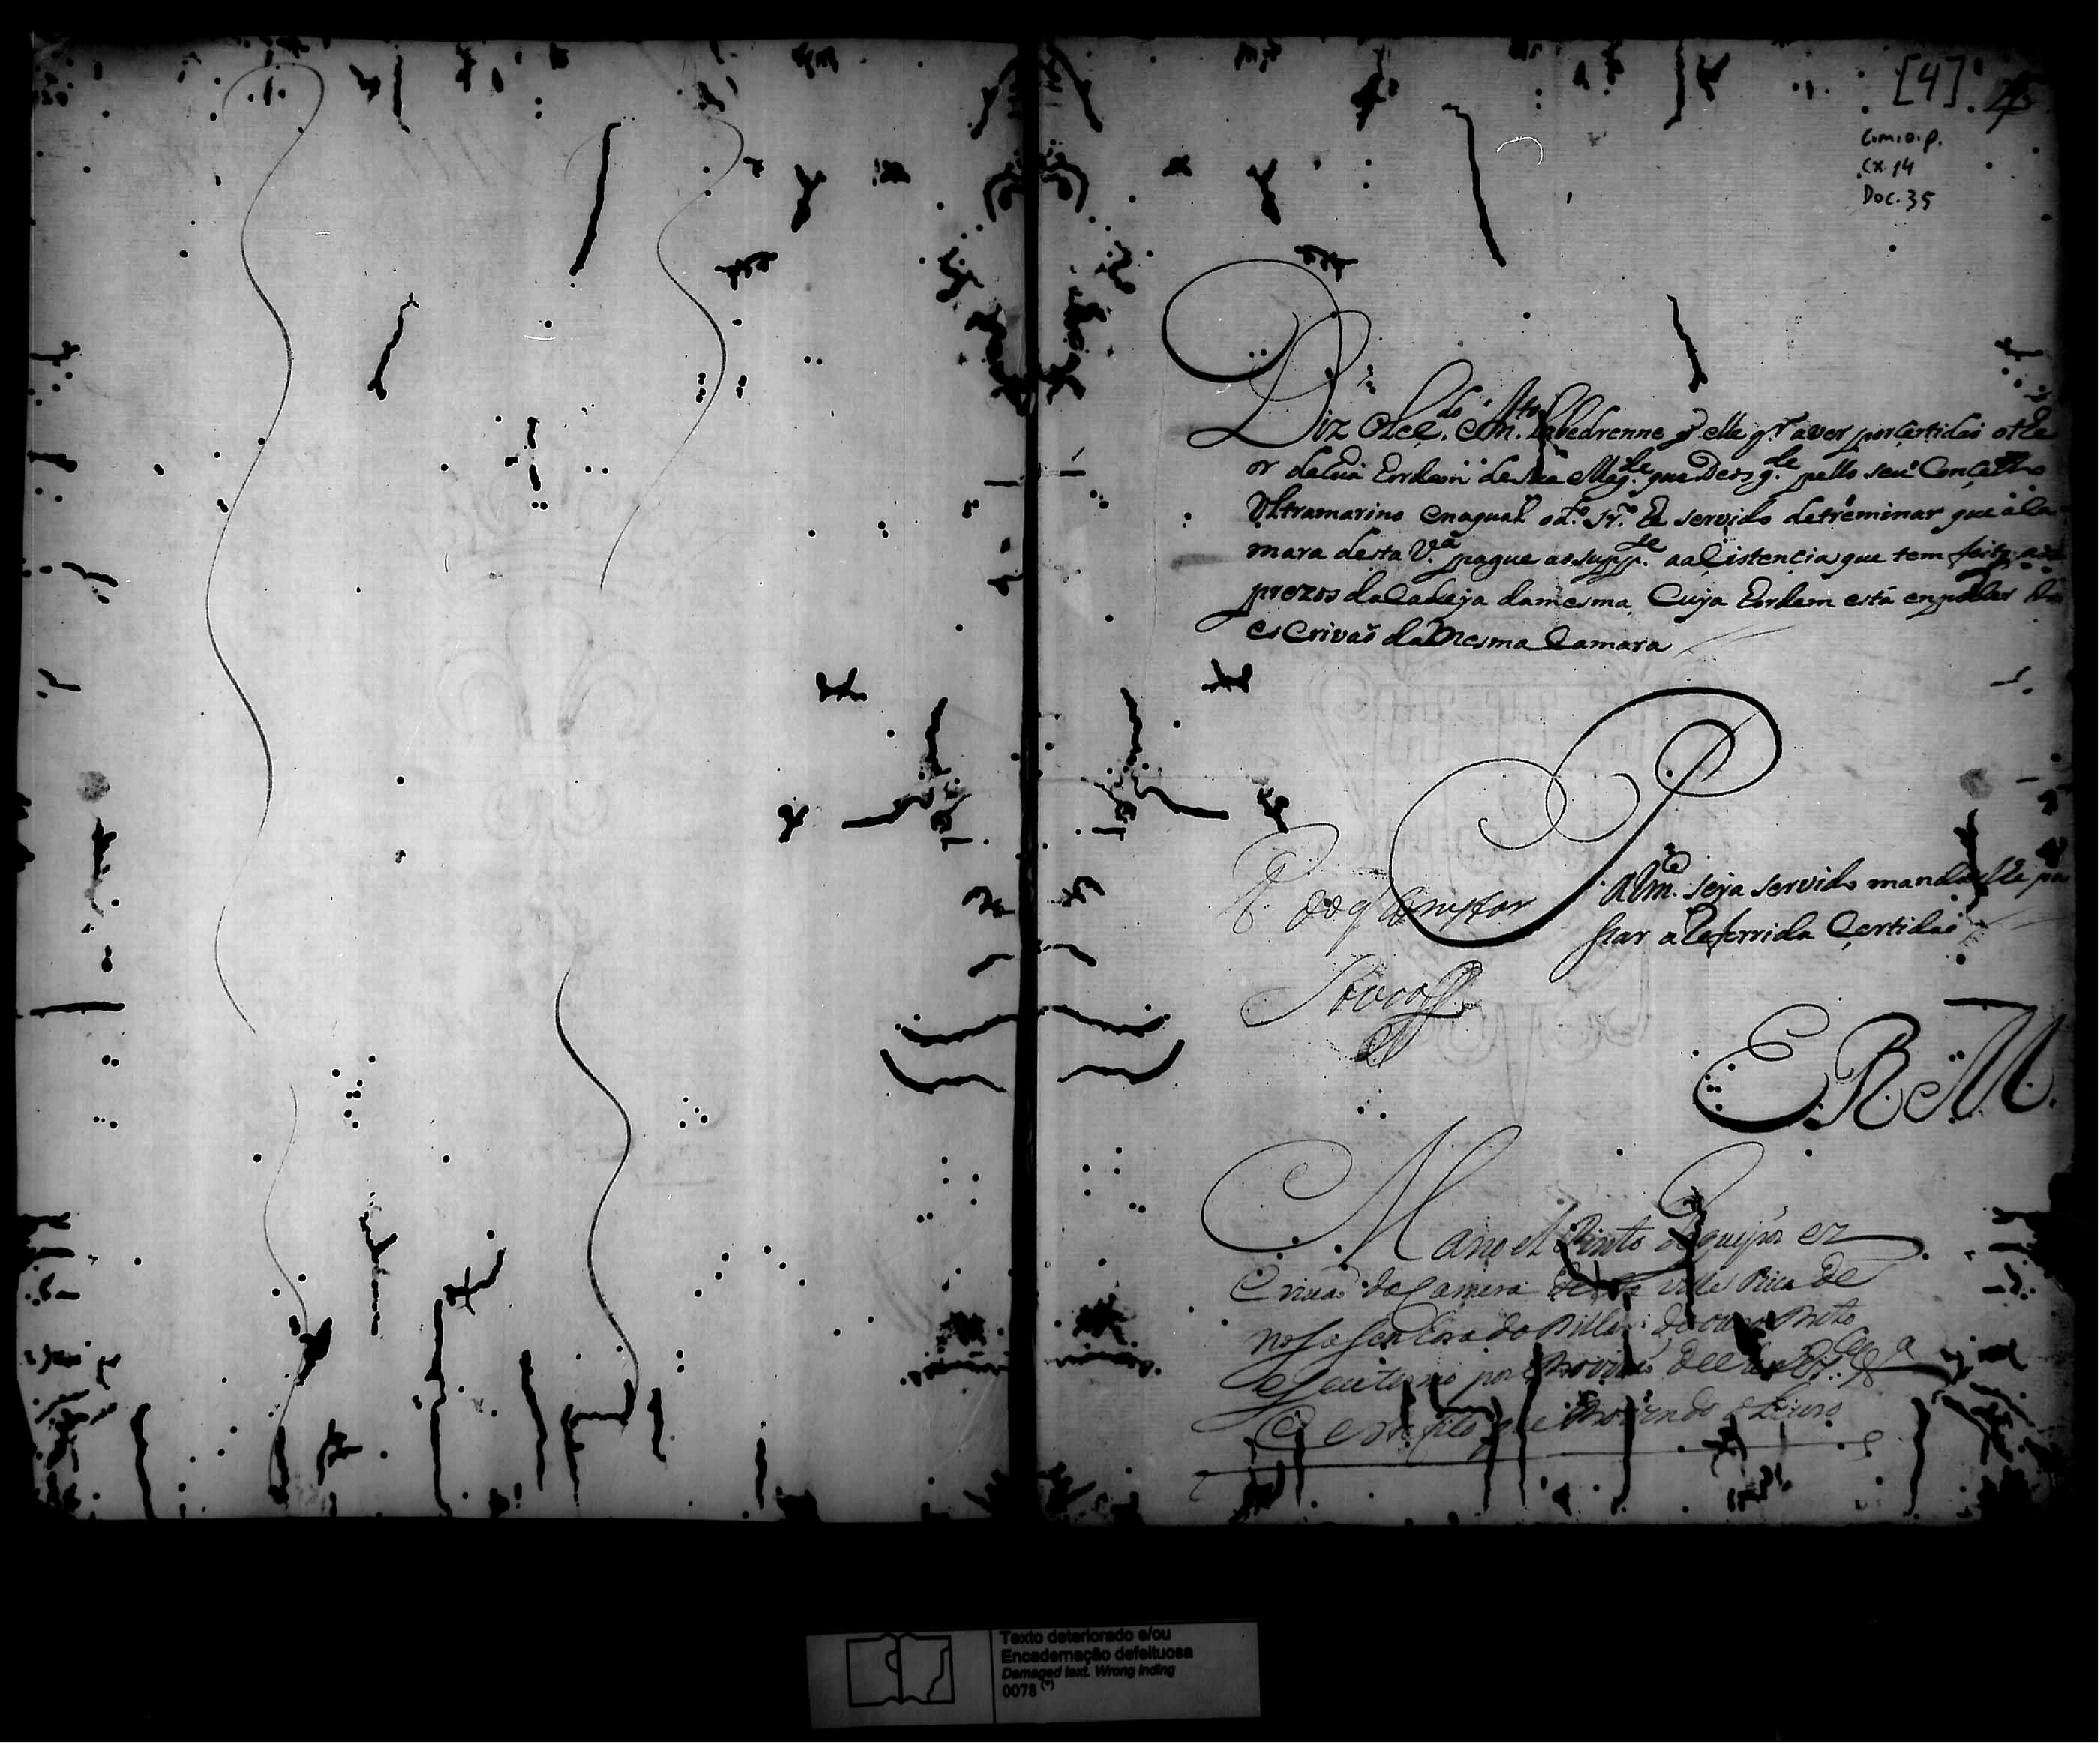 [4].
C.m.o.p.
Cx. 14
Doc. 35
Diz o Lcē.do Ant.to Labedrenne q elle qr aver por certidaõ o the
or de hũa hordem de Sua Mag.de que Deos g.de pello seu Concelho
Ultramarino em a qual o d.o Sr. he servido detreminar que a Ca
mara desta V.a pague ao supp.te a acistencia que tem feito aos
prezos da Cadeya da mesma, Cuja hordem está em poder do
esCrivaõ da Mesma Camara
P
A Vm.ce seja servido mandar lhe pa
ssar a Referrida Certidaõ
ERM.
P. do q Constar
Manoel Pinto de es
Crivaõ da Camera desta villa Rica de
nossa senhora do Pillar do ouro Preto
e seu termo por Provizaõ
Certefico que o Livro
Texto deteriorado e/ou
Encadernação defeituosa
Damaged text. Wrong inding
0078 (*)